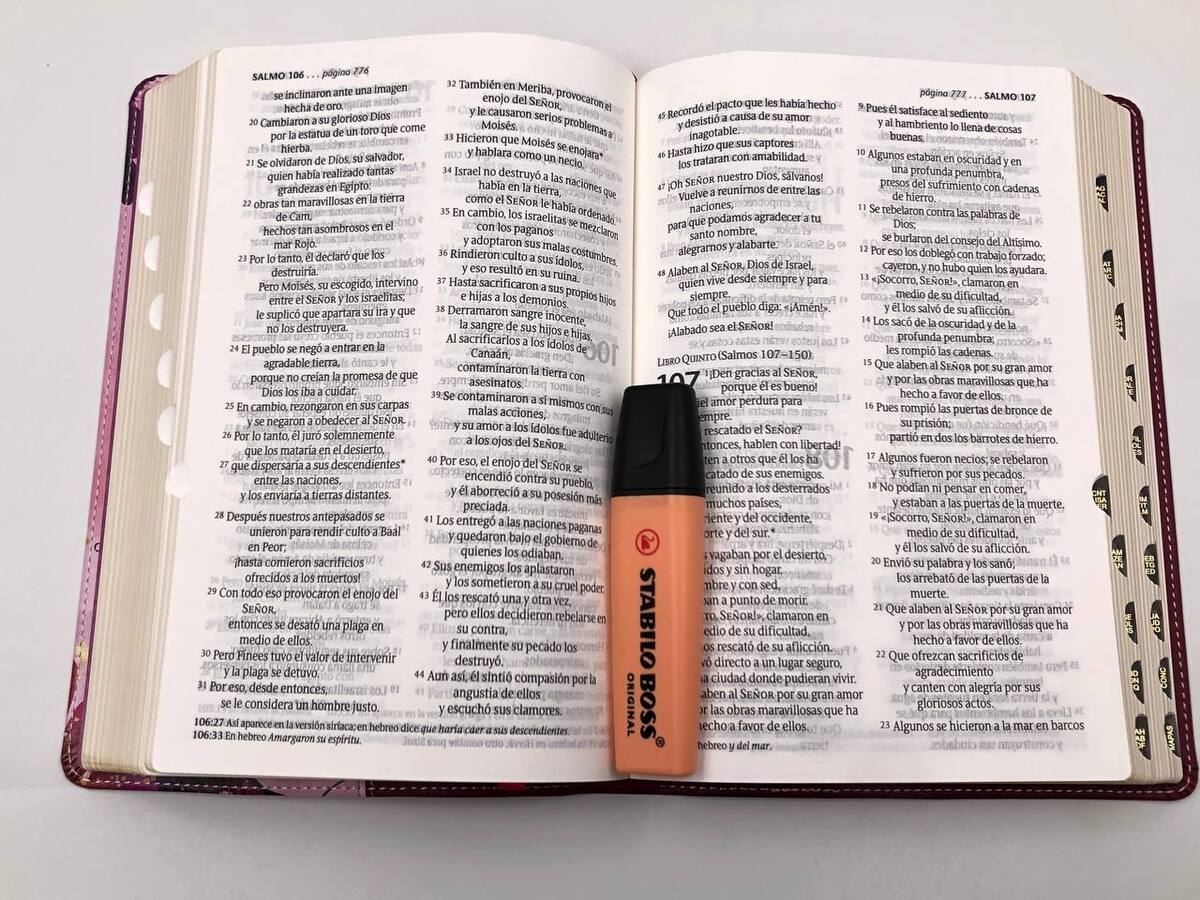 SALMO 106 . . . página 776
se inclinaron ante una imagen
hecha de oro.
20 Cambiaron a su glorioso Dios
por la estatua de un toro que come
hierba.
21 Se olvidaron de Dios, su salvador,
quien había realizado tantas
grandezas en Egipto:
22 obras tan maravillosas en la tierra
de Cam,
hechos tan asombrosos en el
mar Rojo.
23 Por lo tanto, él declaró que los
destruiría.
Pero Moisés, su escogido, intervino
entre el SEÑOR y los israelitas;
le suplicó que apartara su ira y que
no los destruyera.
24 El pueblo se negó a entrar en la
agradable tierra,
porque no creían la promesa de que
Dios los iba a cuidar.
25 En cambio, rezongaron en sus carpas
y se negaron a obedecer al SEÑOR.
26 Por lo tanto, él juró solemnemente
que los mataría en el desierto,
27 que dispersaría a sus descendientes*
entre las naciones,
y los enviaría a tierras distantes.
28 Después nuestros antepasados se
unieron para rendir culto a Baal
en Peor;
¡hasta comieron sacrificios
ofrecidos a los muertos!
29 Con todo eso provocaron el enojo del
SEÑOR,
entonces se desató una plaga en
medio de ellos.
30 Pero Finees tuvo el valor de intervenir
y la plaga se detuvo.
31 Por eso, desde entonces,
se le considera un hombre justo.
32 También en Meriba, provocaron el
enojo del SEÑOR,
y le causaron serios problemas a
Moisés.
33 Hicieron que Moisés se enojara*
y hablara como un necio.
34 Israel no destruyó a las naciones que
había en la tierra,
como el SEÑOR le había ordenado.
35 En cambio, los israelitas se mezclaron
con los paganos
y adoptaron sus malas costumbres.
36 Rindieron culto a sus ídolos,
y eso resultó en su ruina.
37 Hasta sacrificaron a sus propios hijos
e hijas a los demonios.
38 Derramaron sangre inocente,
la sangre de sus hijos e hijas.
Al sacrificarlos a los ídolos de
Canaán,
contaminaron la tierra con
asesinatos.
39 Se contaminaron a sí mismos con sus
malas acciones,
y su amor a los ídolos fue adulterio
a los ojos del SEÑOR.
40 Por eso, el enojo del SEÑOR se
encendió contra su pueblo,
y él aborreció a su posesión más
preciada.
41 Los entregó a las naciones paganas
y quedaron bajo el gobierno de
quienes los odiaban.
42 Sus enemigos los aplastaron
y los sometieron a su cruel poder.
43 Él los rescató una y otra vez,
pero ellos decidieron rebelarse en
su contra,
y finalmente su pecado los
destruyó.
44 Aun así, él sintió compasión por la
angustia de ellos
y escuchó sus clamores.
106:27 Así aparece en la versión siríaca; en hebreo dice que haría caer a sus descendientes.
106:33 En hebreo Amargaron su espíritu.
página 777 . . . SALMO 107
45 Recordó el pacto que les había hecho
y desistió a causa de su amor
inagotable.
46 Hasta hizo que sus captores
los trataran con amabilidad.
47 ¡Oh SEÑOR nuestro Dios, sálvanos!
Vuelve a reunirnos de entre las
naciones,
para que podamos agradecer a tu
santo nombre,
alegrarnos y alabarte.
48 Alaben al SEÑOR, Dios de Israel,
quien vive desde siempre y para
siempre.
Que todo el pueblo diga: «¡Amén!».
¡Alabado sea el SEÑOR!
LIBRO QUINTO (Salmos 107–150)
107 1 ¡Den gracias al SEÑOR,
porque él es bueno!
el amor perdura para
empre.
rescatado el SEÑOR?
ntonces, hablen con libertad!
ten a otros que él los ha
catado de sus enemigos.
reunido a los desterrados
muchos países,
riente y del occidente,
orte y del sur.*
vagaban por el desierto,
dos y sin hogar.
mbre y con sed,
an a punto de morir.
ro, SEÑOR!», clamaron en
edio de su dificultad,
os rescató de su aflicción.
vó directo a un lugar seguro,
a ciudad donde pudieran vivir.
aben al SEÑOR por su gran amor
r las obras maravillosas que ha
hecho a favor de ellos.
hebreo y del mar.
9 Pues él satisface al sediento
y al hambriento lo llena de cosas
buenas.
10 Algunos estaban en oscuridad y en
una profunda penumbra,
presos del sufrimiento con cadenas
de hierro.
11 Se rebelaron contra las palabras de
Dios;
se burlaron del consejo del Altísimo.
12 Por eso los doblegó con trabajo forzado;
cayeron, y no hubo quien los ayudara.
13 «¡Socorro, SEÑOR!», clamaron en
medio de su dificultad,
y él los salvó de su aflicción.
14 Los sacó de la oscuridad y de la
profunda penumbra;
les rompió las cadenas.
15 Que alaben al SEÑOR por su gran amor
y por las obras maravillosas que ha
hecho a favor de ellos.
16 Pues rompió las puertas de bronce de
su prisión;
partió en dos los barrotes de hierro.
17 Algunos fueron necios; se rebelaron
y sufrieron por sus pecados.
18 No podían ni pensar en comer,
y estaban a las puertas de la muerte.
19 «¡Socorro, SEÑOR!», clamaron en
medio de su dificultad,
y él los salvó de su aflicción.
20 Envió su palabra y los sanó;
los arrebató de las puertas de la
muerte.
21 Que alaben al SEÑOR por su gran amor
y por las obras maravillosas que ha
hecho a favor de ellos.
22 Que ofrezcan sacrificios de
agradecimiento
y canten con alegría por sus
gloriosos actos.
23 Algunos se hicieron a la mar en barcos
STABILO BOSS®
ORIGINAL
CONC
MAPAS